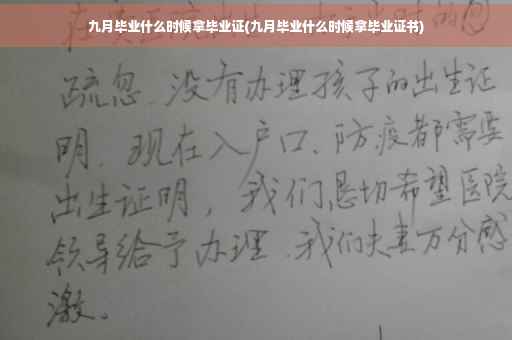 九月毕业什么时候拿毕业证(九月毕业什么时候拿毕业证书)
疏忽、没有办理孩子的出生证
明、现在入户口、防疫都需要
出生证明，我们恳切希望医院
领导给予办理、我们夫妻万分感
激。